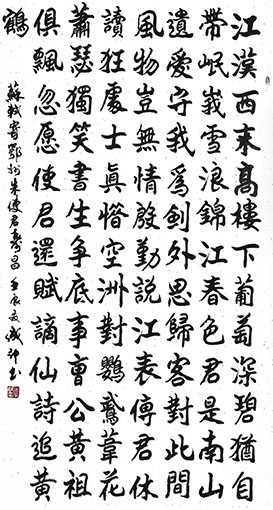 江漢西來高樓下葡萄深碧猶自
帶岷峩雪浪錦江春色君是南山
遺愛守我爲劍外思歸客對此間
風物豈無情殷勤說江表傳君休
讀狂處士真惜空洲對鸚鵡葦花
蕭瑟獨笑書生爭底事曹公黃祖
俱飄忽愿使君還賦謫仙詩追黃
鶴
蘇軾寄鄂州朱使君壽昌壬辰